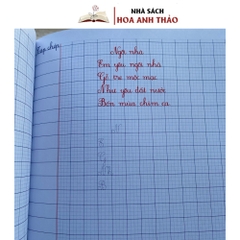 NHÀ SÁCH
HOA ANH THẢO
Tập chép:
Ngôi nhà
Em yêu ngôi nhà
Gỗ tre mộc mạc
Như yêu đất nước
Bốn mùa chim ca.